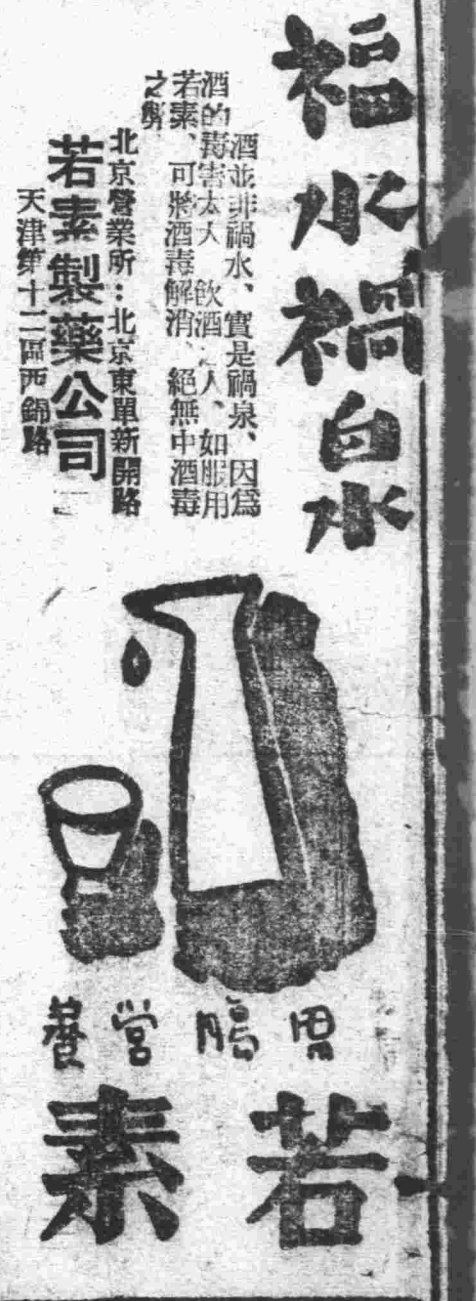 福水禍泉
酒並非禍水、實是禍泉、因爲
酒的毒害太大 飲酒之人、如服用
若素、可將酒毒解消、絕無中酒毒
之弊
北京營業所：北京東單新開路
若素製藥公司
天津第十二區西錦路
胃腸營養
若素